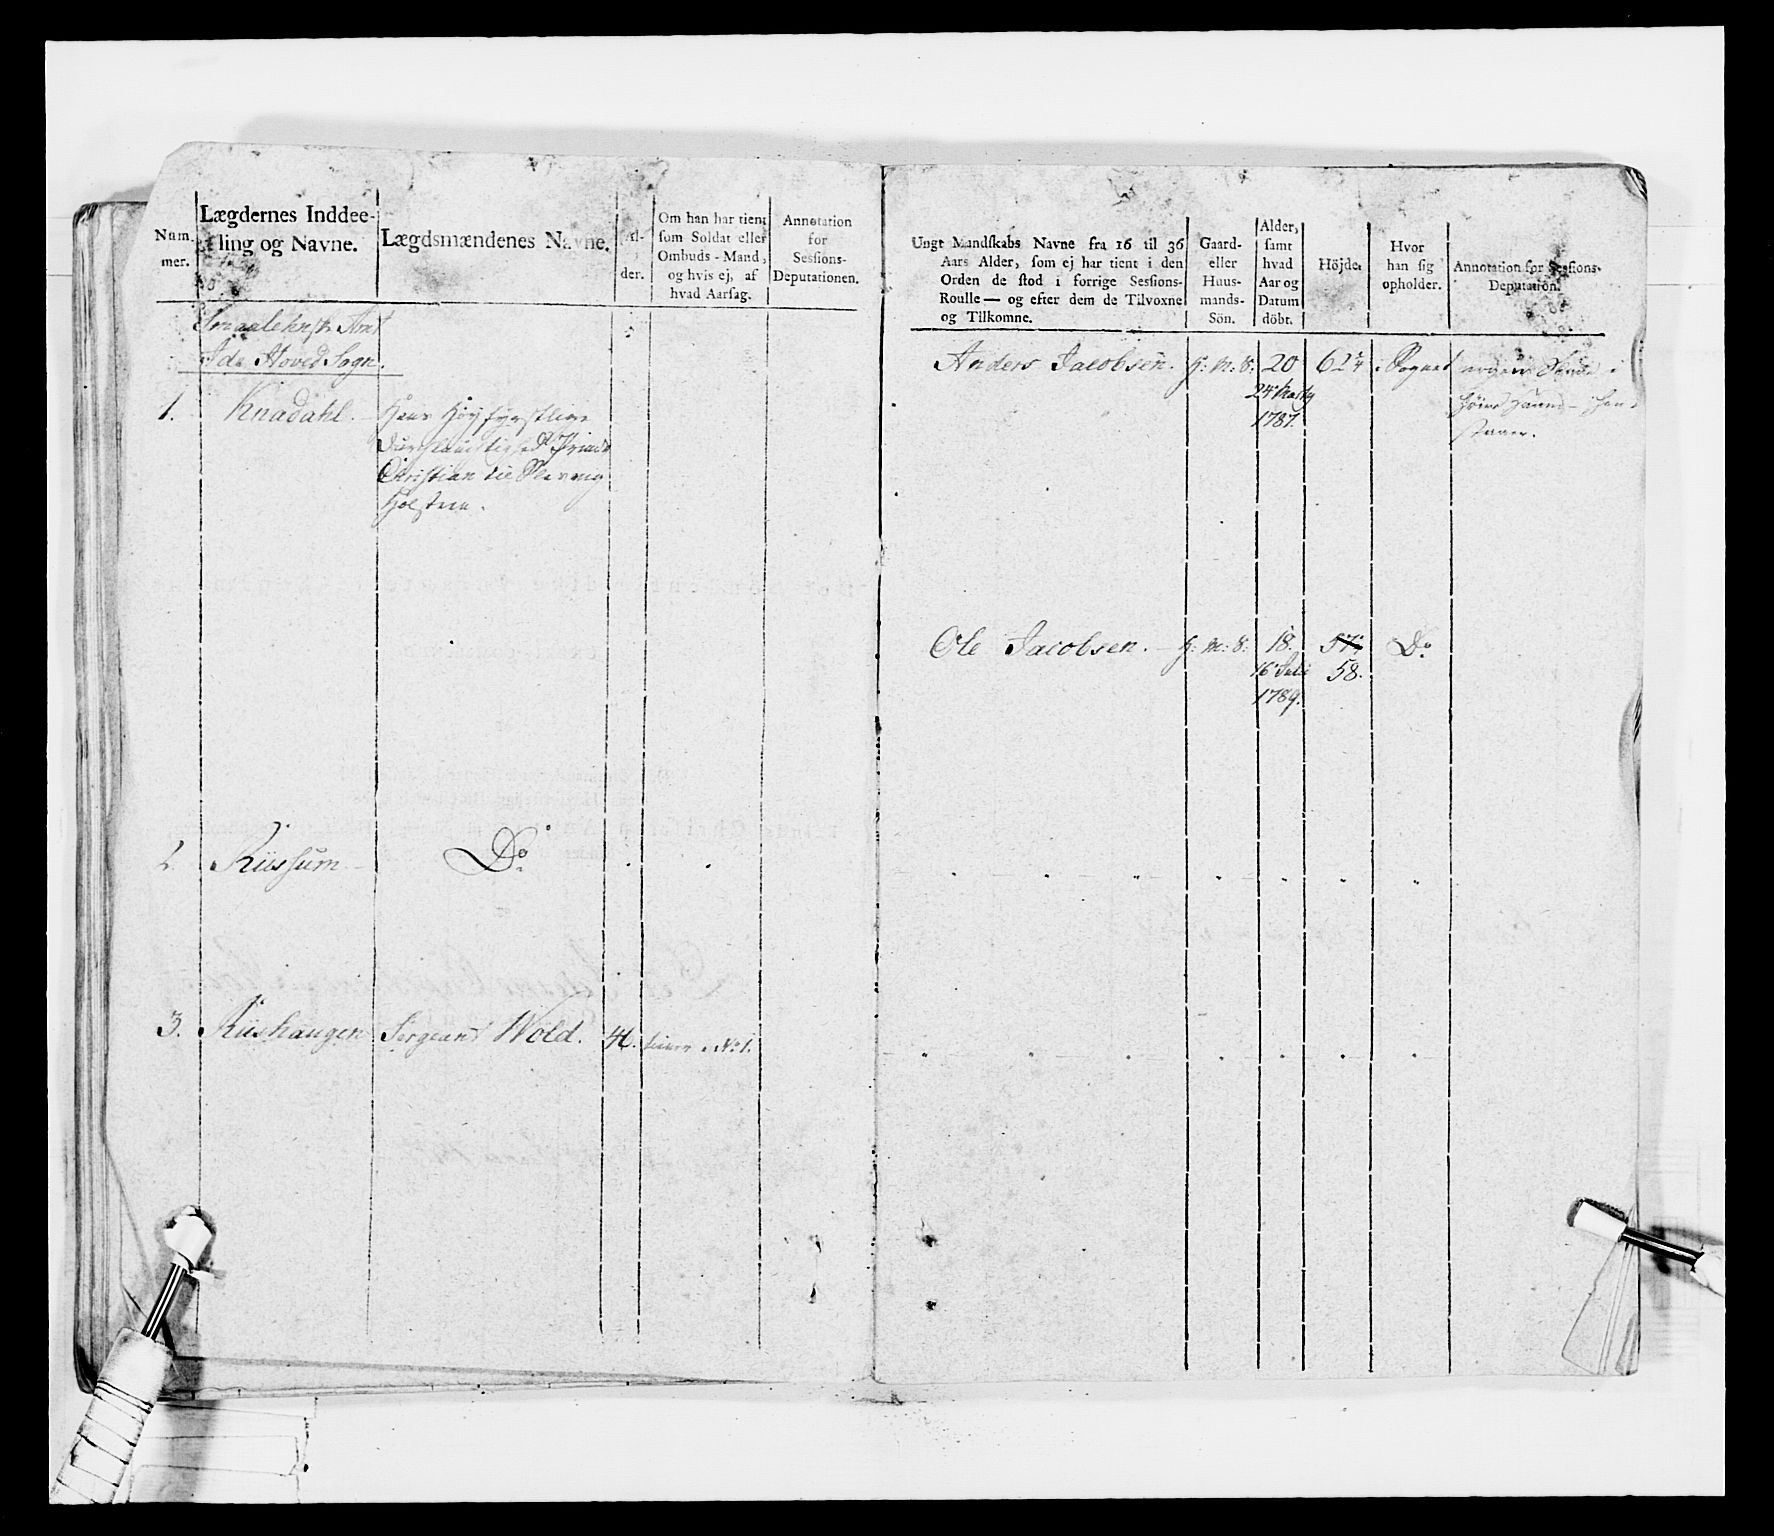 Num-
mer.
Lægdernes Inddee-
ling og Navne.
Lægdsmændenes Navne.
Al-
der.
Om han har tient
som Soldat eller
Ombuds-Mand,
og hvis ej, af
hvad Aarsag.
Annotation
for
Sessions-
Deputationen.
Smaalehnsk Amt
Ide Hoved Sogn.
1. Knadahl. Hans Høyfyrstlige
Durchlauctighed Prinds
Christian til Slesvig
Holsteen.
2. Riissum - Do
3. Riishaugen Sergeant Wold. 46. No 1.
Ungt Mandskabs Navne fra 16 til 36
Aars Alder, som ej har tient i den
Orden de stod i forrige Sessions-
Roulle — og efter dem de Tilvoxne
og Tilkomne.
Gaard-
eller
Huus-
mands-
Sön.
Alder,
samt
hvad
Aar og
Datum
döbt.
Höjde.
Hvor
han sig
opholder.
Annotation for Sessions-
Deputation.
Anders Jacobsen. H: M: S: 20 62¼ i Sognet
24 Martz
1787.
Ole Jacobsen. - H: M: S: 18. 57. Do
16 Julii 58.
1789.